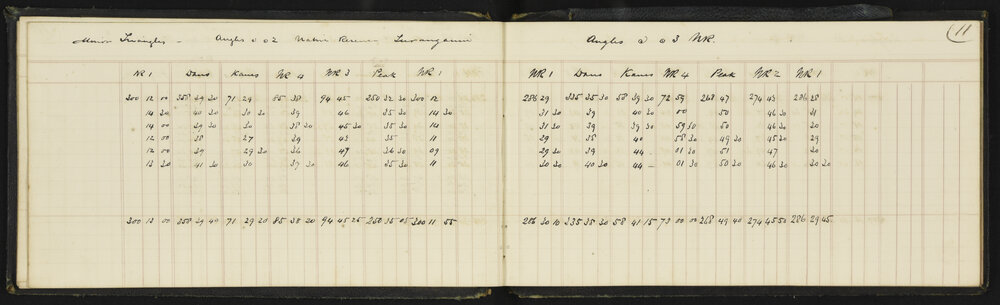 Minor Triangles - Angles @ 02 Native Reserve
NR 1 Kanes NR 4 NR 3 Peak NR 1
300 12 00 358 39 30 71 29 85 38 94 45 250 32 30 300 12
14 30 40 30 30 30 39 46 35 30 14 30
14 00 39 30 30 38 30 45 30 35 30 14
12 00 38 27 39 43 35 11
12 00 39 29 30 36 47 36 30 09
13 30 41 30 30 37 30 46 35 30 11
300 13 00 358 39 40 71 29 20 85 38 20 94 45 25 250 35 05 300 11 55
11
Angles @ 03 NR.
NR 1 Kanes NR 4 Peak NR 2 NR 1
286 29 335 35 30 58 39 30 72 59 268 47 274 43 286 28
31 30 39 40 30 00 50 46 30 31
31 30 39 39 30 59 30 50 46 30
29 38 40 58 30 49 30 45 30 29
29 30 39 44 - 01 30 51 47 30
30 30 40 30 44 - 01 30 50 30 46 30 30 30
286 30 10 335 38 30 58 41 15 73 00 00 268 49 40 274 45 50 286 29 45